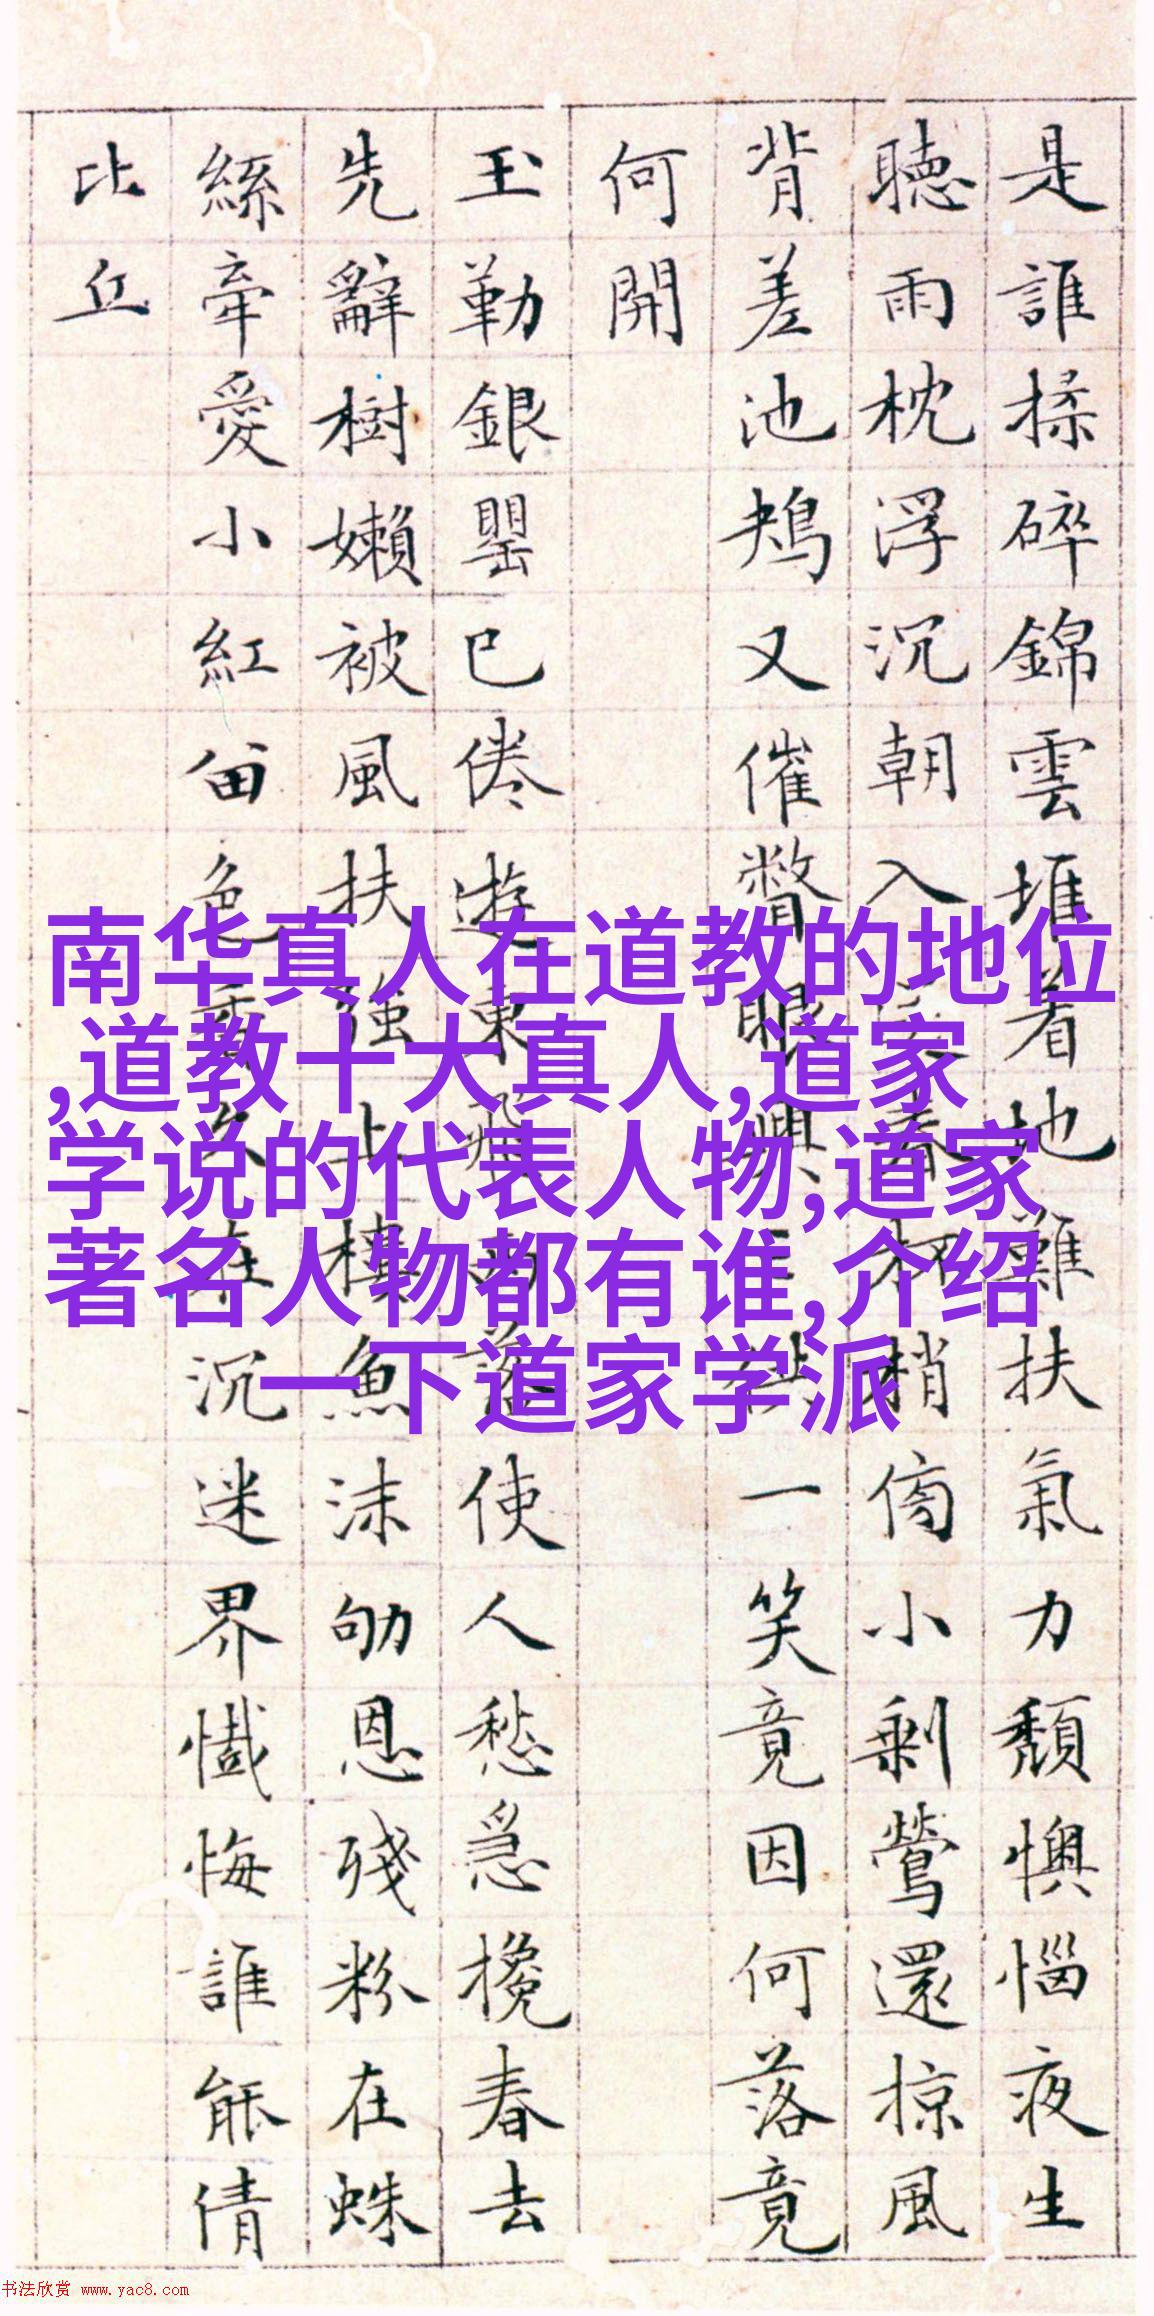 是誰揉碎錦雲堆着地難扶氣力頹懊惱夜生
聽雨枕浮沉朝入春梢傍小剩鶯還掠風
背差池鴂又催瞥眼興亡供一笑竟因何落竟
何開
玉勒銀罌已倦遊東飛西落使人愁急攙春去
先辭樹嬾被風扶強上樓魚沫劬恩殘粉在蛛
絲牽愛小紅留色香久在沉迷界懺悔誰能倩
比丘
南华真人在道教的地位
,道教十大真人,道家
学说的代表人物,道家
著名人物都有谁,介绍
一下道家学派
书法欣赏 www.yac8.com